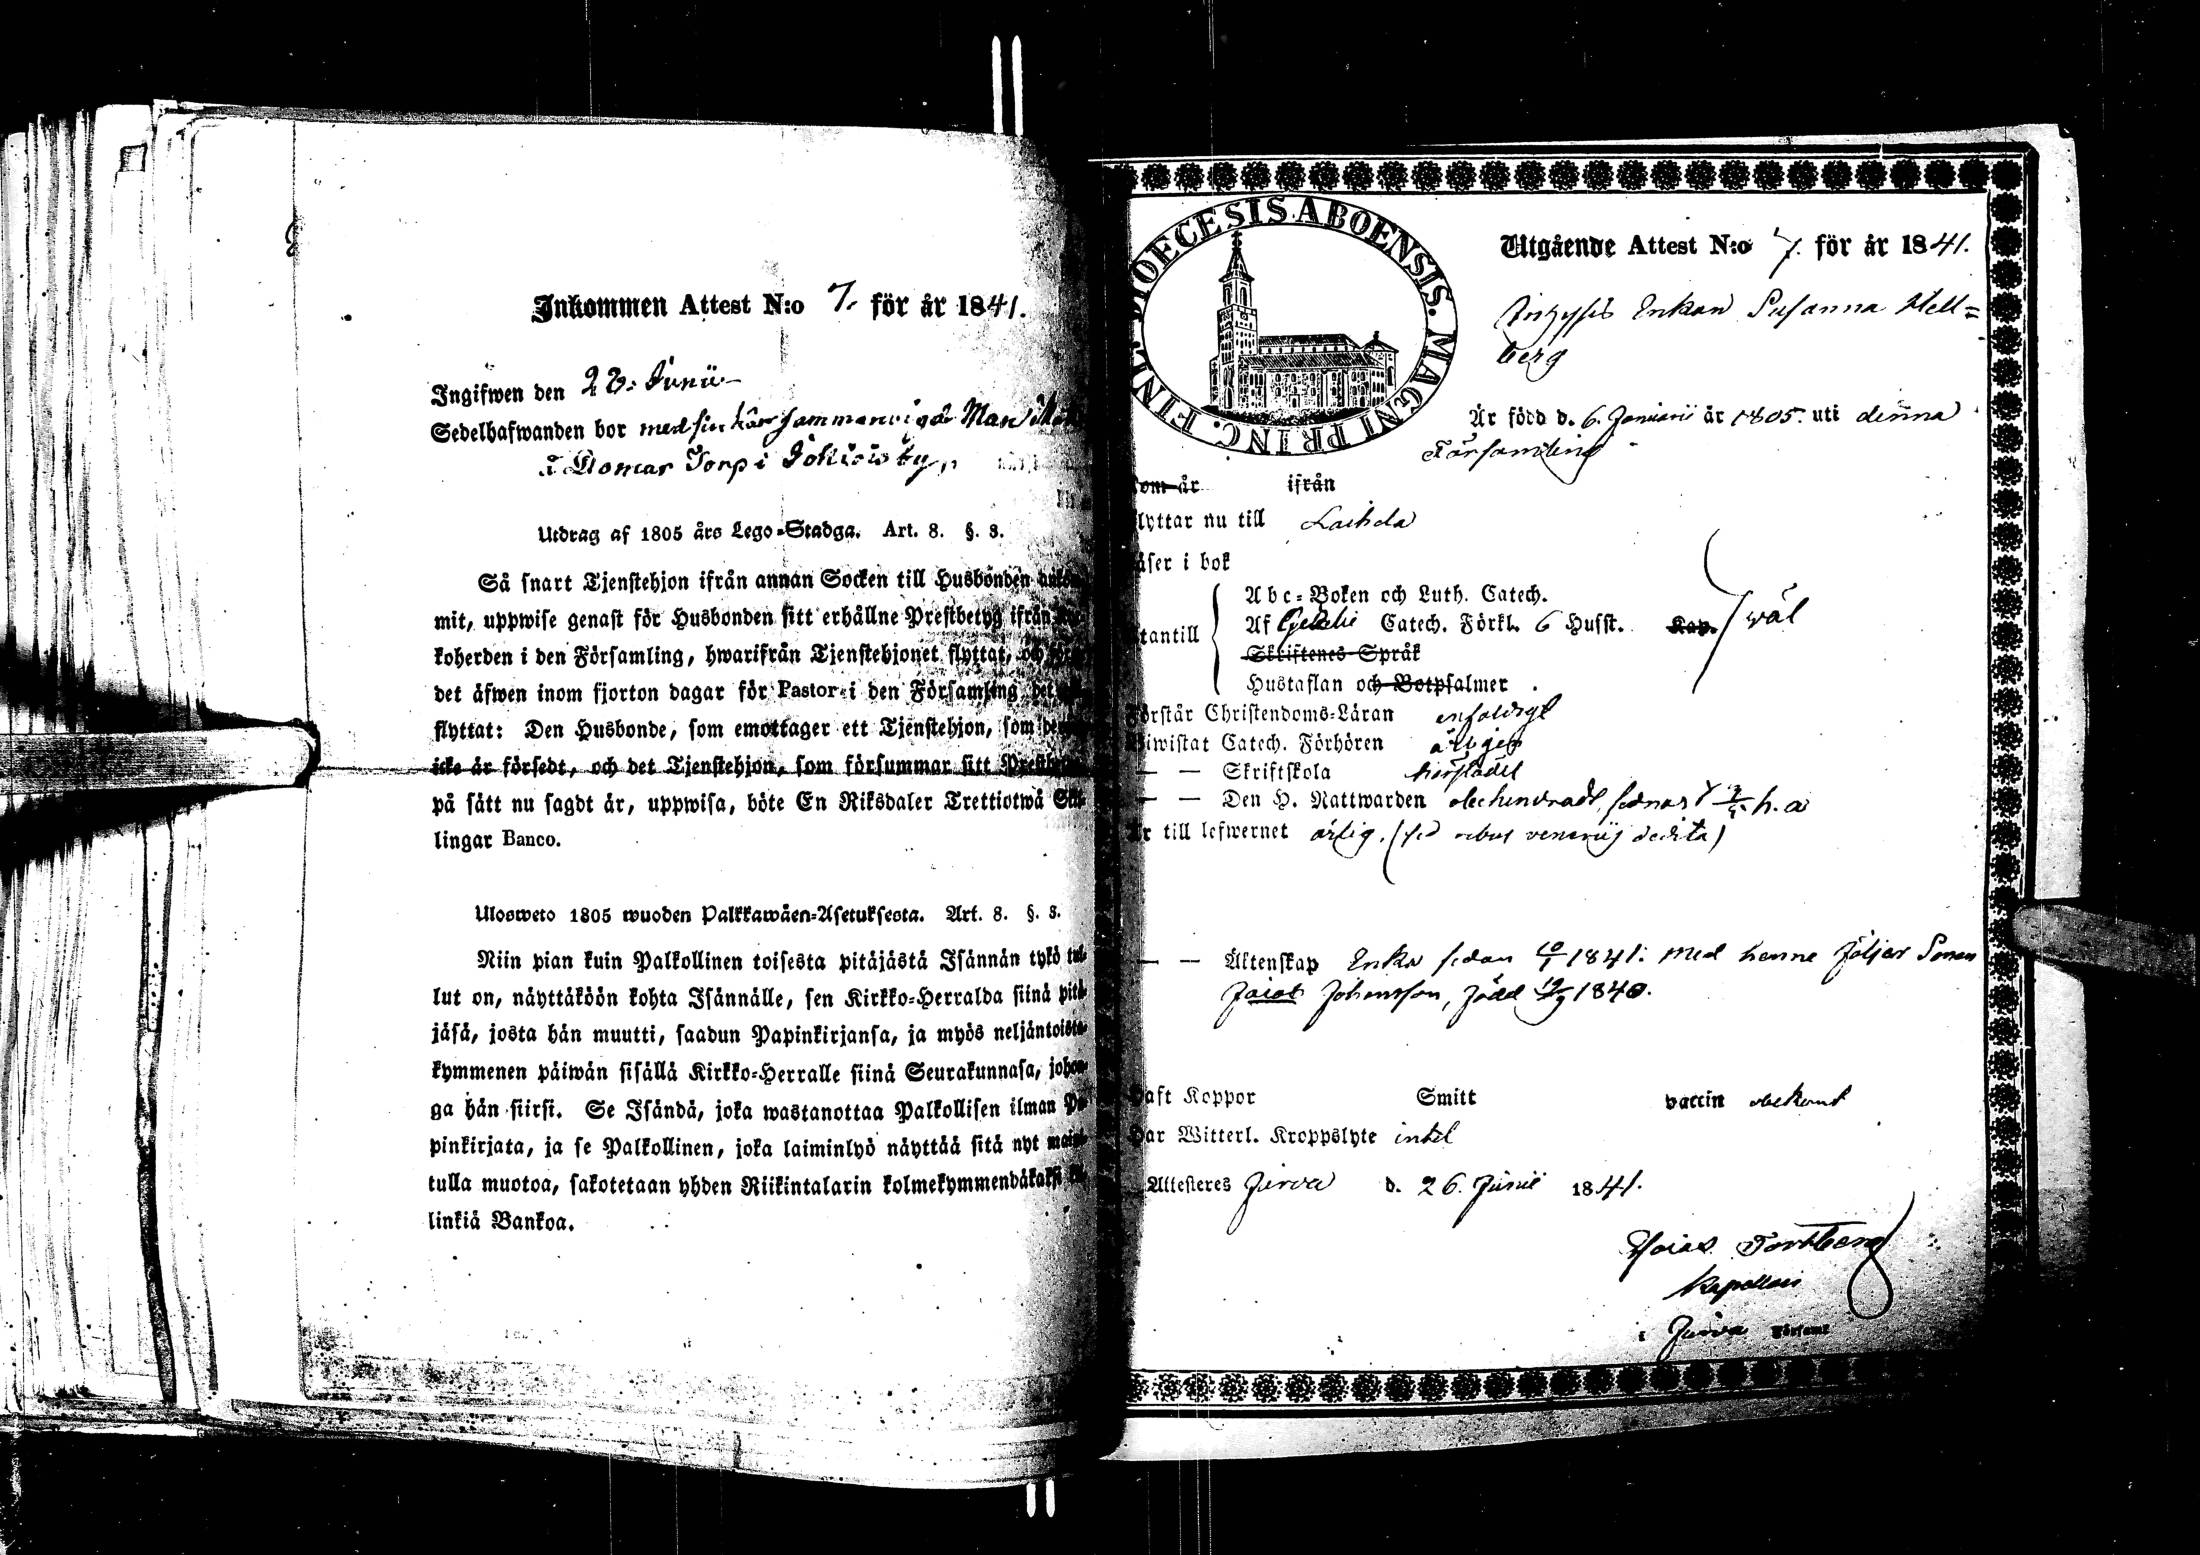 Inkommen Attest N:o 7. för år 1841.
Ingifwen den 28. Junii
Sedelhafwanden bor med sin här sammanvigde Man
i Torp i Jokiois by
Utdrag af 1805 års Lego-Stadga. Art. 8. §. 3.
Så snart Tjenstehjon ifrån annan Socken till Husbonden ankom-
mit, uppwise genast för Husbonden sitt erhållne Prestbetyg ifrån
koherden i den Församling, hwarifrån Tjenstehjonet flyttat, och
det äfwen inom fjorton dagar för Pastor i den Församling, det
flyttat: Den Husbonde, som emottager ett Tjenstehjon, som
icke är försedt, och det Tjenstehjon, som försummar sitt
på sätt nu sagdt är, uppwisa, böte En Riksdaler Trettiotwå Skil-
lingar Banco.
Ulosweto 1805 wuoden Palkkawäen-Asetuksesta. Art. 8. §. 3.
Niin pian kuin Palkollinen toisesta pitäjästä Isännän tykö tul-
lut on, näyttäköön kohta Isännälle, sen Kirkko-Herralda siinä pitä-
jäsä, josta hän muutti, saadun Papinkirjansa, ja myös neljäntoista-
kymmenen päiwän sisällä Kirkko-Herralle siinä Seurakunnasa, johon-
ga hän siirsi. Se Isändä, joka wastanottaa Palkollisen ilman Pa-
pinkirjata, ja se Palkollinen, joka laiminlyö näyttää sitä nyt maini-
tulla muotoa, sakotetaan yhden Riikintalarin kolmekymmendäkaksi kil-
linkiä Bankoa.
DIOECESIS ABOENSIS. MAGNI PRINC. FINL.
Utgående Attest N:o 7. för år 1841.
Enkan Susanna Hell=
berg
Är född d. 6. Januarii år 1805. uti denna
Församling
om år ifrån
lyttar nu till Laihela
äser i bok
Abc-Boken och Luth. Catech.
tantill Af Catech. Förkl. 6 Husst. Kap. wäl
Skriftenes Språk
Hustaflan och Botpsalmer.
örstår Christendoms-Läran enfaldigt
iwistat Catech. Förhören årligen
— — Skriftskola härstädes
— — Den H. Nattwarden obehindradt, sednast h. a
r till lefwernet ärlig. (sed rebus veneriis dedita)
— — Äktenskap Enka sedan 10/1 1841. Med henne följer Sonen
Johansson, född 12/9 1840.
aft Koppor Smitt vaccin obekant
ar Witterl. Kroppslyte intet
Attesteres Jurva d. 26. Junii 1841.
Kapellan
i Jurva Församl